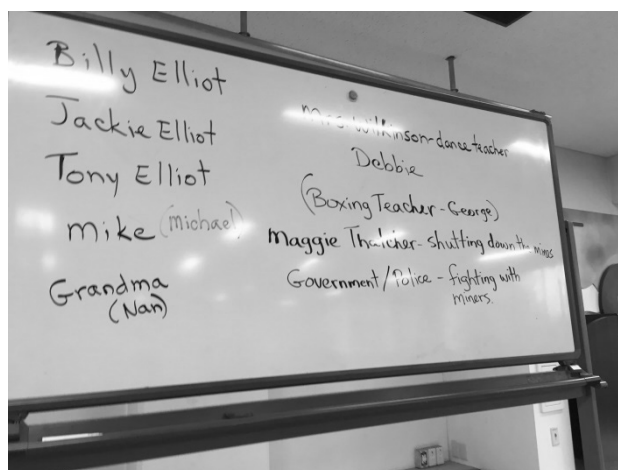 Billy Elliot
Jackie Elliot
Tony Elliot
mike (michael)
Grandma
(Nan)
Mrs. Wilkinson-dance teacher
Debbie
(Boxing Teacher - George)
Maggie Thatcher- shutting down the mines
Government/Police - fighting with
miners.